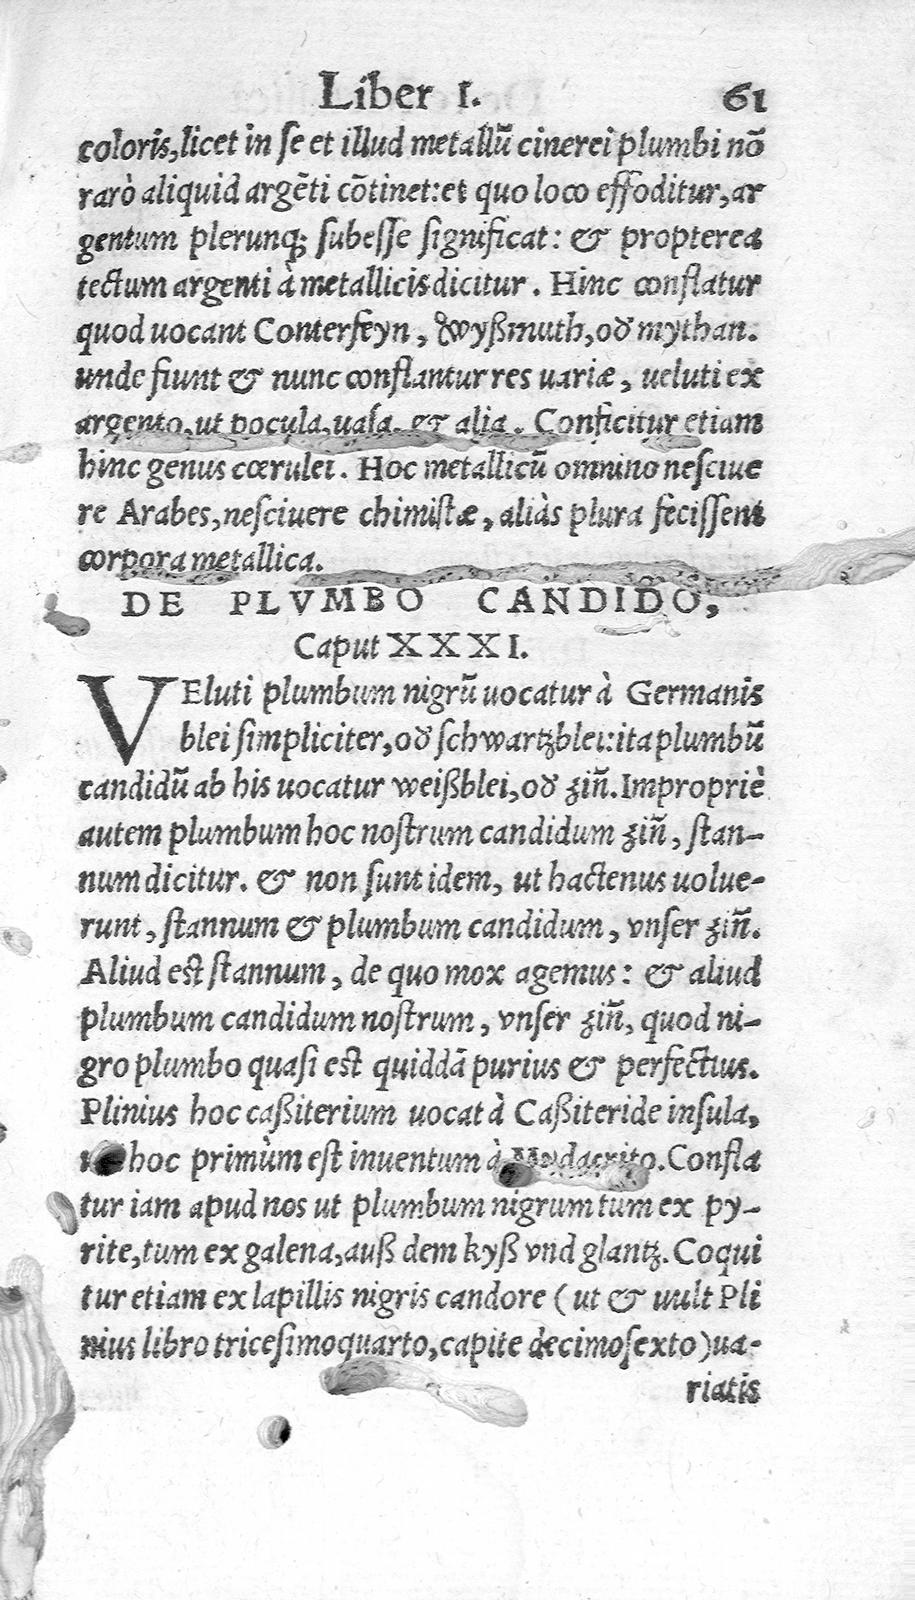 Liber I. 61
coloris, licet in se et illud metallū cinerei plumbi nō
rarò aliquid argēti cōtinet: et quo loco effoditur, ar
gentum plerunq; subesse significat: & propterea
tectum argenti à metallicis dicitur. Hinc conflatur
quod uocant Conterfeyn, Wyßmuth, od mythan.
unde fiunt & nunc conflantur res uariæ, ueluti ex
argento, ut pocula, uasa, & alia. Conficitur etiam
hinc genus cœrulei. Hoc metallicū omnino nesciue
re Arabes, nesciuere chimistæ, aliàs plura fecissent
corpora metallica.
DE PLVMBO CANDIDO,
Caput XXXI.
VEluti plumbum nigrū uocatur à Germanis
blei simpliciter, od schwartzblei: ita plumbū
candidū ab his uocatur weißblei, od zin̄. Impropriè
autem plumbum hoc nostrum candidum zin̄, stan-
num dicitur. & non sunt idem, ut hactenus uolue-
runt, stannum & plumbum candidum, vnser zin̄.
Aliud est stannum, de quo mox agemus: & aliud
plumbum candidum nostrum, vnser zin̄, quod ni-
gro plumbo quasi est quiddā purius & perfectius.
Plinius hoc caßiterium uocat à Caßiteride insula,
hoc primùm est inuentum à Midacrito. Confla
tur iam apud nos ut plumbum nigrum tum ex py-
rite, tum ex galena, auß dem kyß vnd glantz. Coqui
tur etiam ex lapillis nigris candore (ut & uult Pli
nius libro tricesimoquarto, capite decimosexto) ua-
riatis